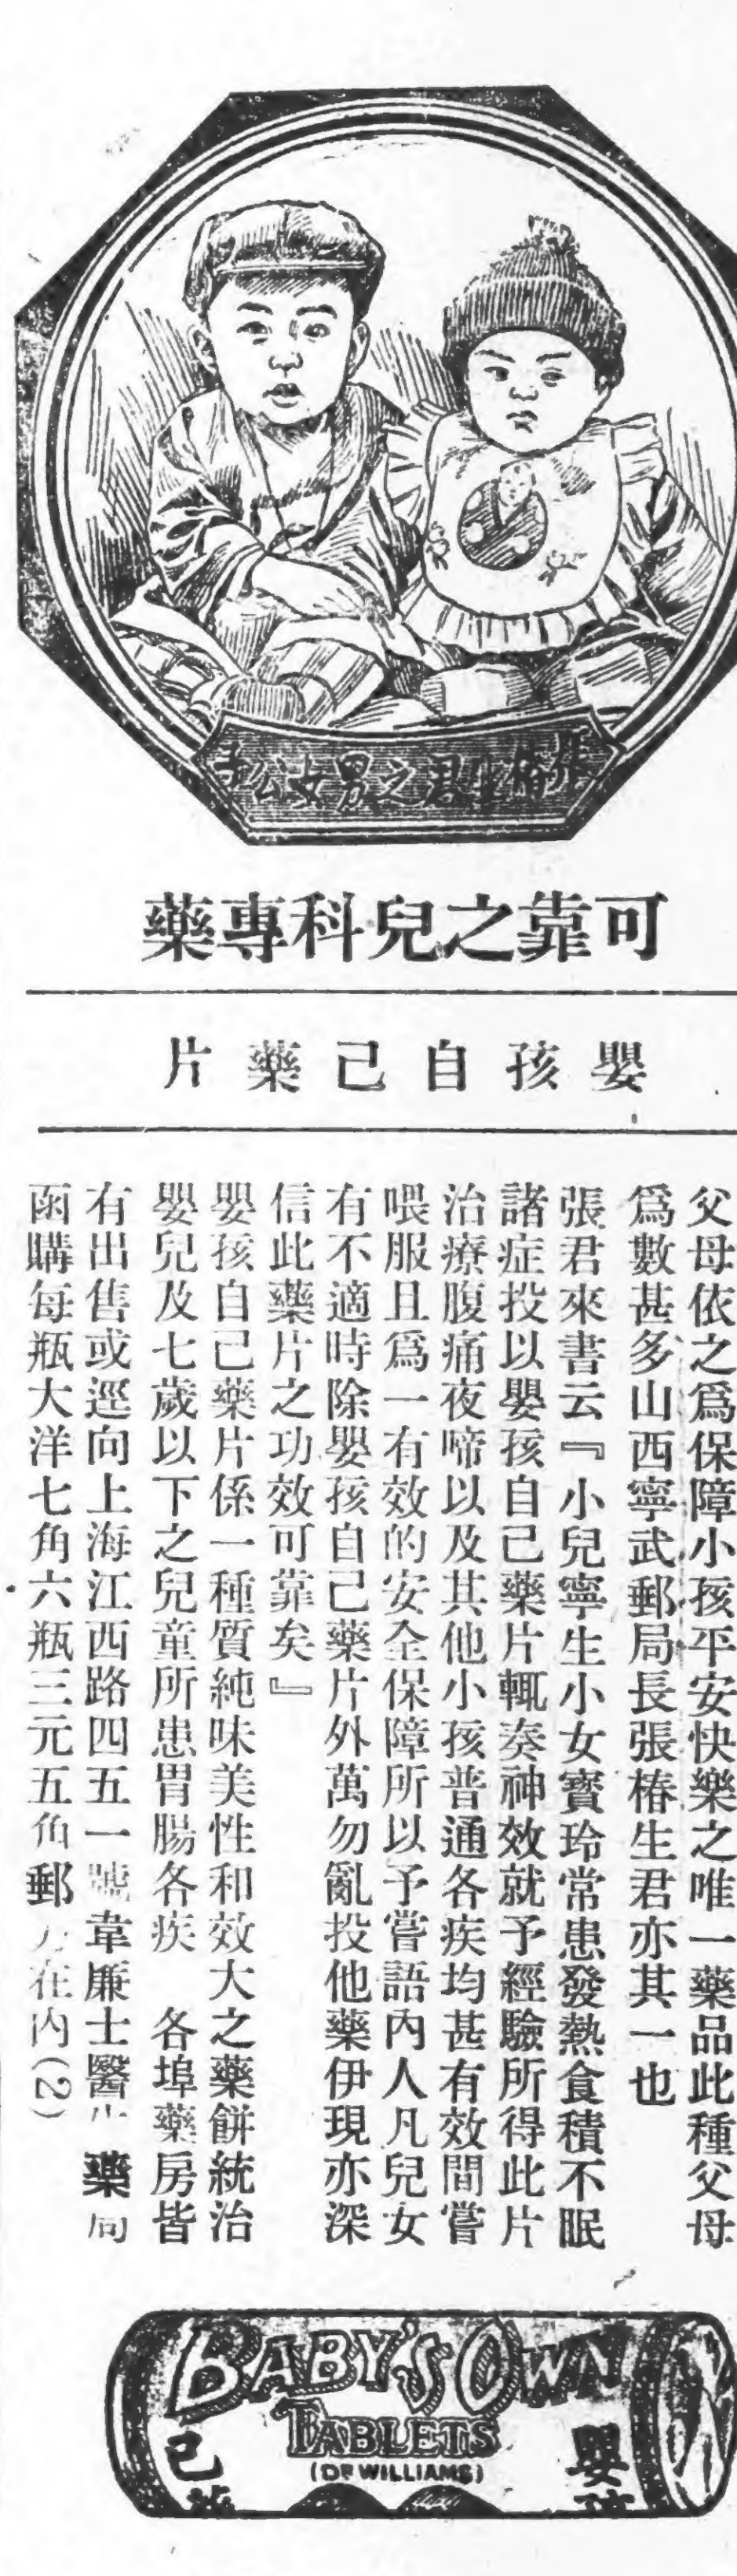 張椿生君之男女公子
可靠之兒科專藥
嬰孩自己藥片
父母依之爲保障小孩平安快樂之唯一藥品此種父母
爲數甚多山西寧武郵局長張椿生君亦其一也
張君來書云『小兒寧生小女寳玲常患發熱食積不眠
諸症投以嬰孩自己藥片輒奏神效就予經驗所得此片
治療腹痛夜啼以及其他小孩普通各疾均甚有效間嘗
喂服且爲一有效的安全保障所以予嘗語內人凡兒女
有不適時除嬰孩自己藥片外萬勿亂投他藥伊現亦深
信此藥片之功效可靠矣』
嬰孩自己藥片係一種質純味美性和效大之藥餅統治
嬰兒及七歲以下之兒童所患胃腸各疾　各埠藥房皆
有出售或逕向上海江西路四五一號韋廉士醫藥局
函購每瓶大洋七角六瓶三元五角郵力在內(2)
BABY'S OWN
TABLETS
(DR WILLIAMS)
嬰孩
己藥